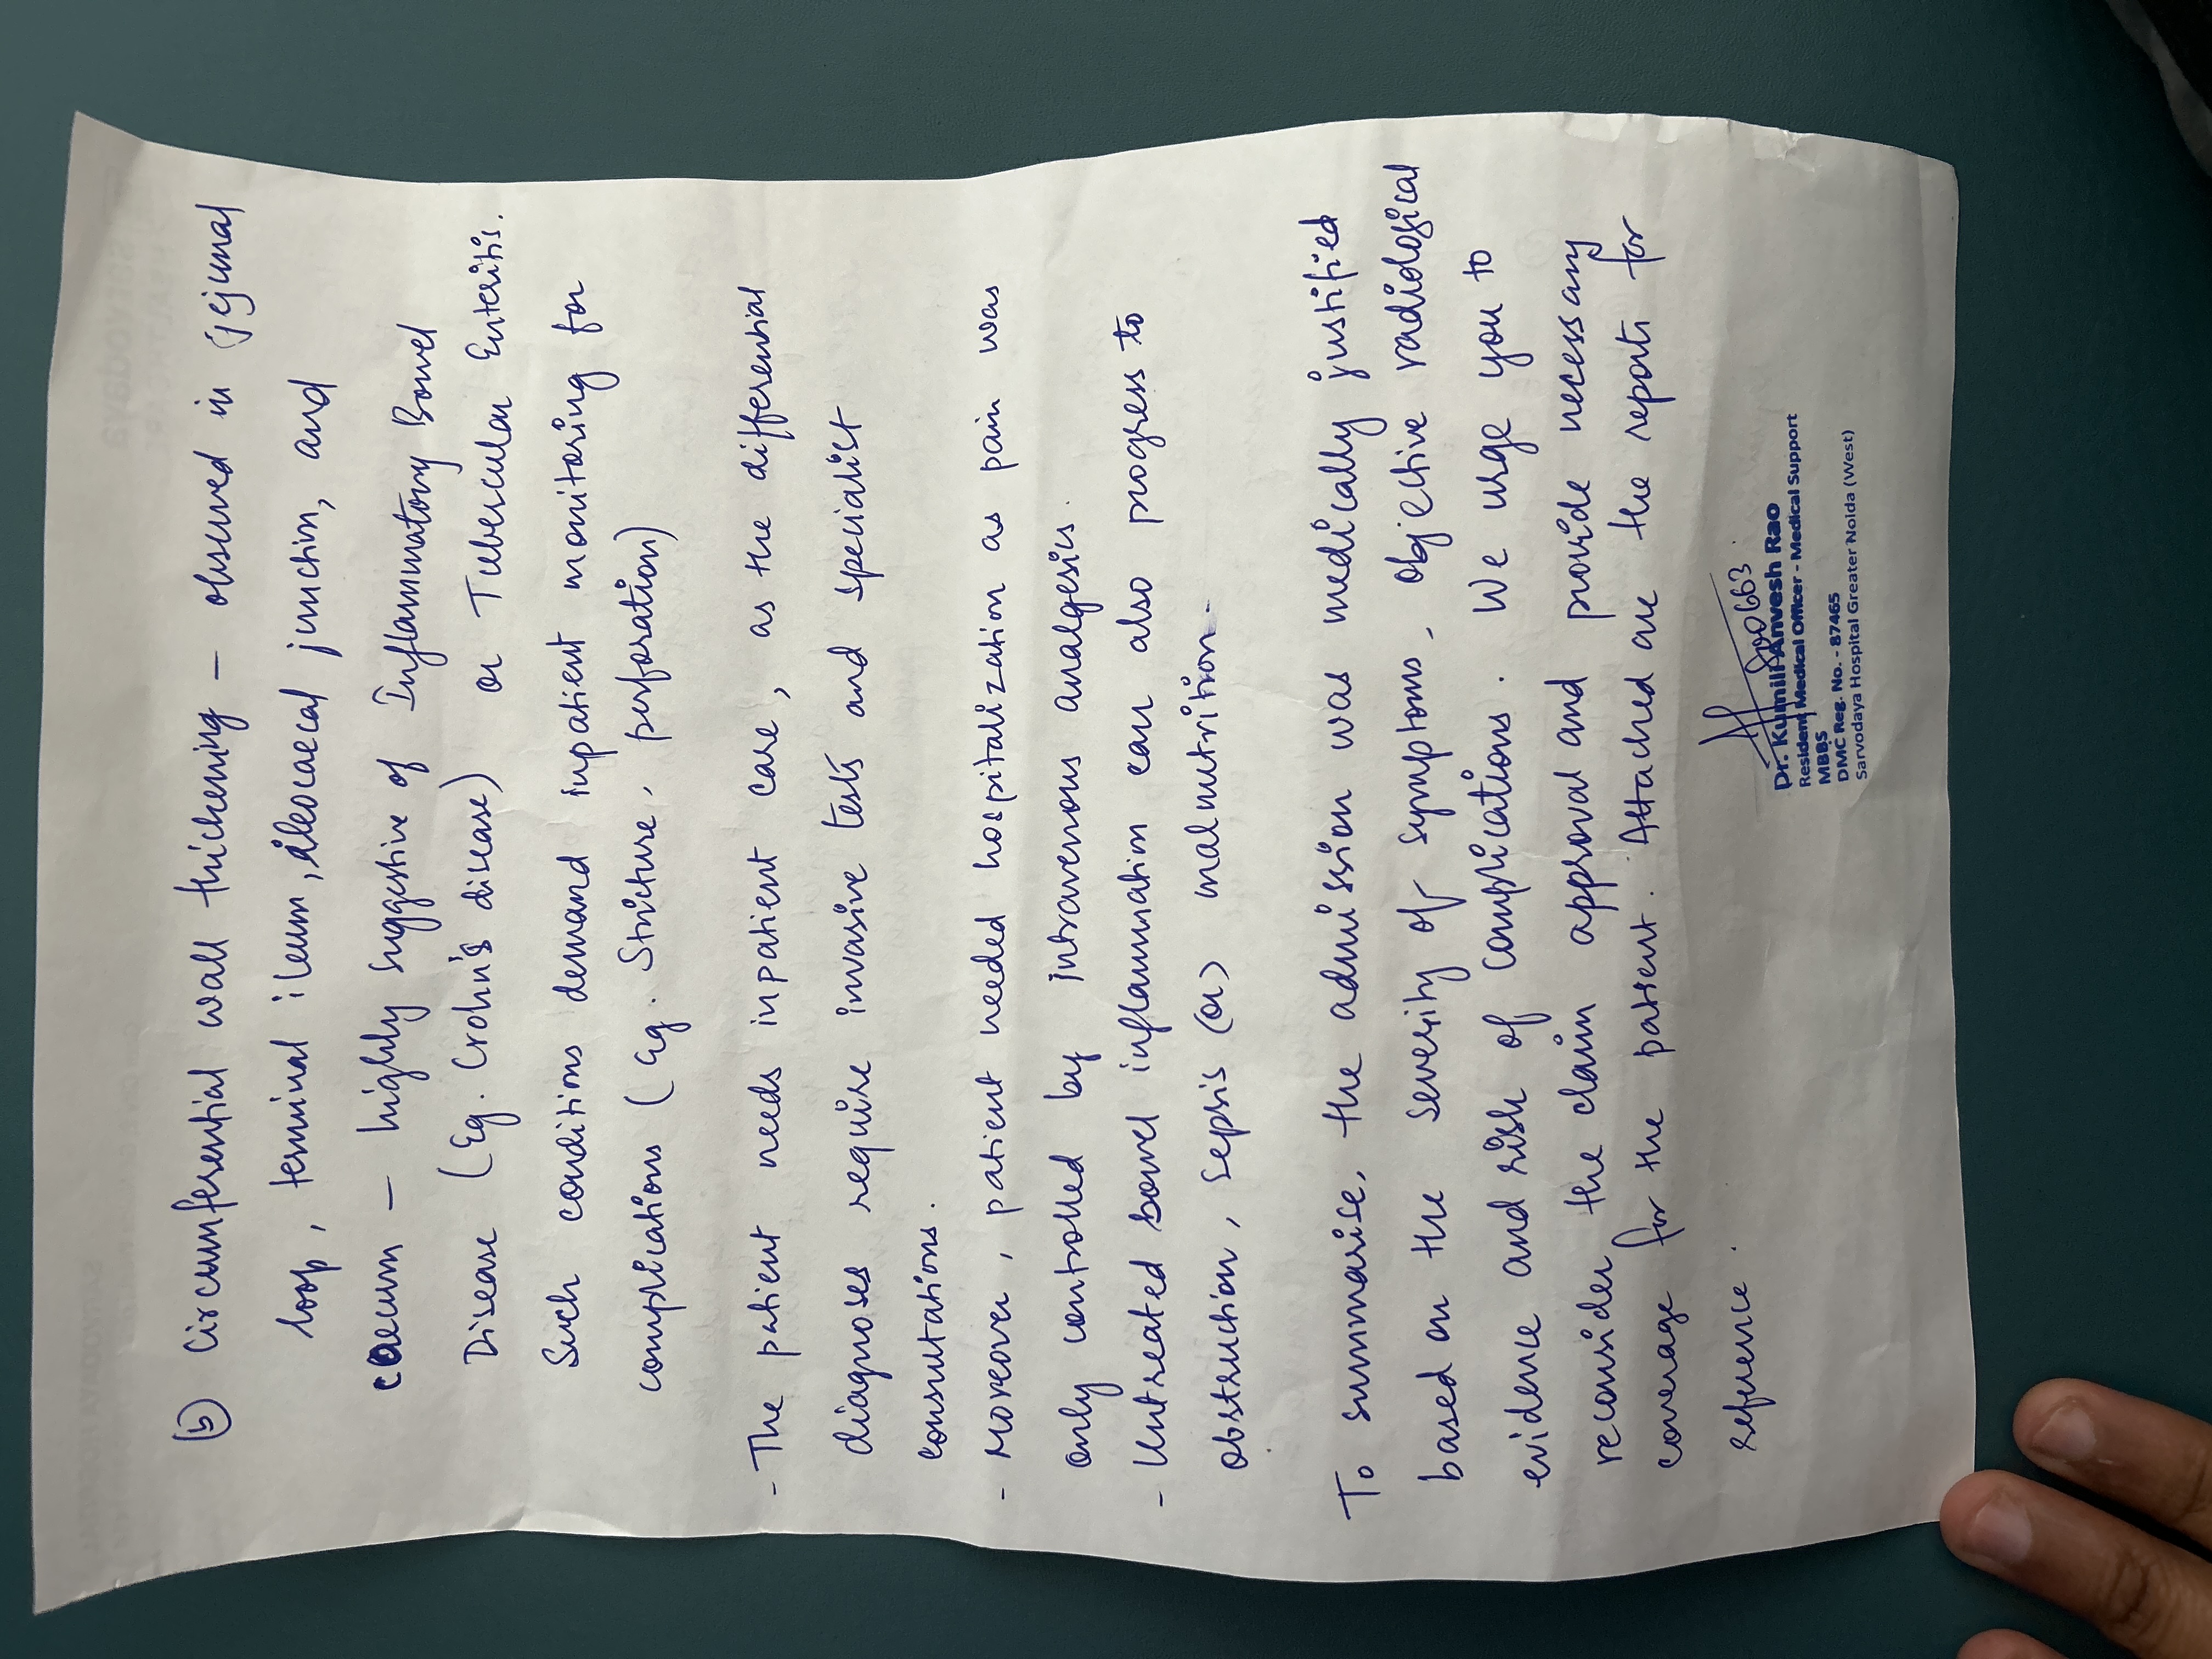 (b) Circumferential wall thickening - observed in jejunal
loop, terminal ileum, ileocaecal junction, and
caecum - highly suggestive of Inflammatory Bowel
Disease (Eg. Crohn's disease) or Tubercular Enteritis.
Such conditions demand inpatient monitoring for
complications (Eg. Stricture, perforation)
- The patient needs inpatient care, as the differential
diagnoses require invasive tests and specialist
consultations.
- Moreover, patient needed hospitalization as pain was
only controlled by intravenous analgesics.
- Untreated bowel inflammation can also progress to
obstruction, sepsis (or) malnutrition.
To summarise, the admission was medically justified
based on the severity of symptoms, objective radiological
evidence and risk of complications. We urge you to
reconsider the claim approval and provide necessary
coverage for the patient. Attached are the reports for
reference.
Dr. Kumili Anvesh Rao
Resident Medical Officer - Medical Support
MBBS
DMC Reg. No. - 87465
Sarvodaya Hospital Greater Noida (West)